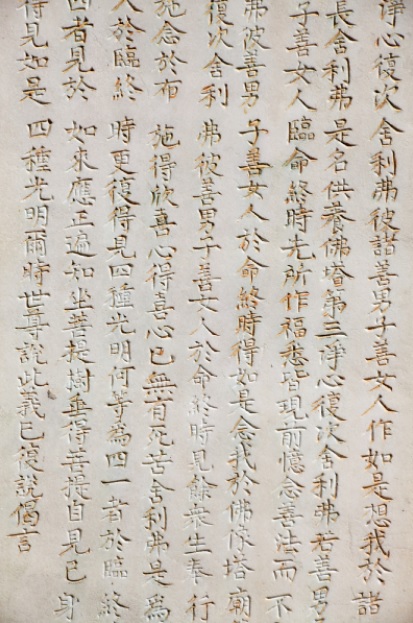 淨心復次舍利弗彼諸善男子善女人作如是想我於諸
長舍利弗是名供養佛塔第三淨心復次舍利弗若善男
子善女人臨命終時先所作福悉皆現前憶念善法而不
弗彼善男子善女人於命終時得如是念我於佛塔廟
復次舍利弗彼善男子善女人於命終時見餘眾生奉行
施念於布施得欣喜心得喜心已無有死苦舍利弗是為
人於臨終時更復得見四種光明何等為四一者於臨終
四者見於如來應正遍知坐菩提樹垂得菩提自見已身
得見如是四種光明爾時世尊說此義已復說偈言